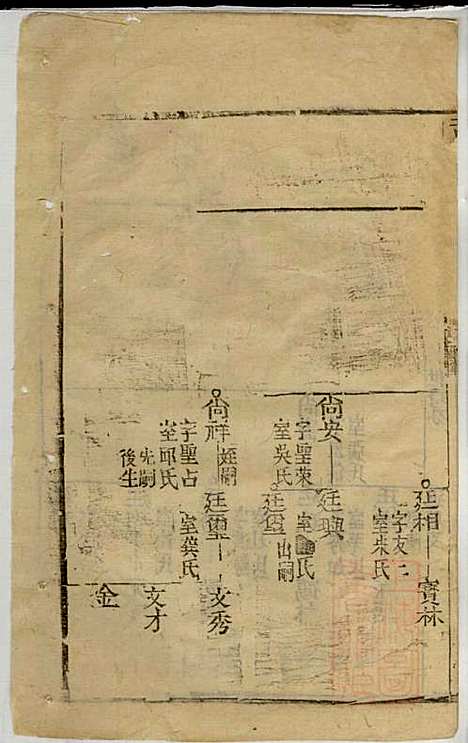 廷相 寶林
字友二
室朱氏
尚安 廷興
字聖榮 室 氏
室吳氏 廷璽 出嗣
尚祥 姪嗣 廷璽 文秀
字聖占 室龔氏 文才
室邱氏 金
先嗣
後生